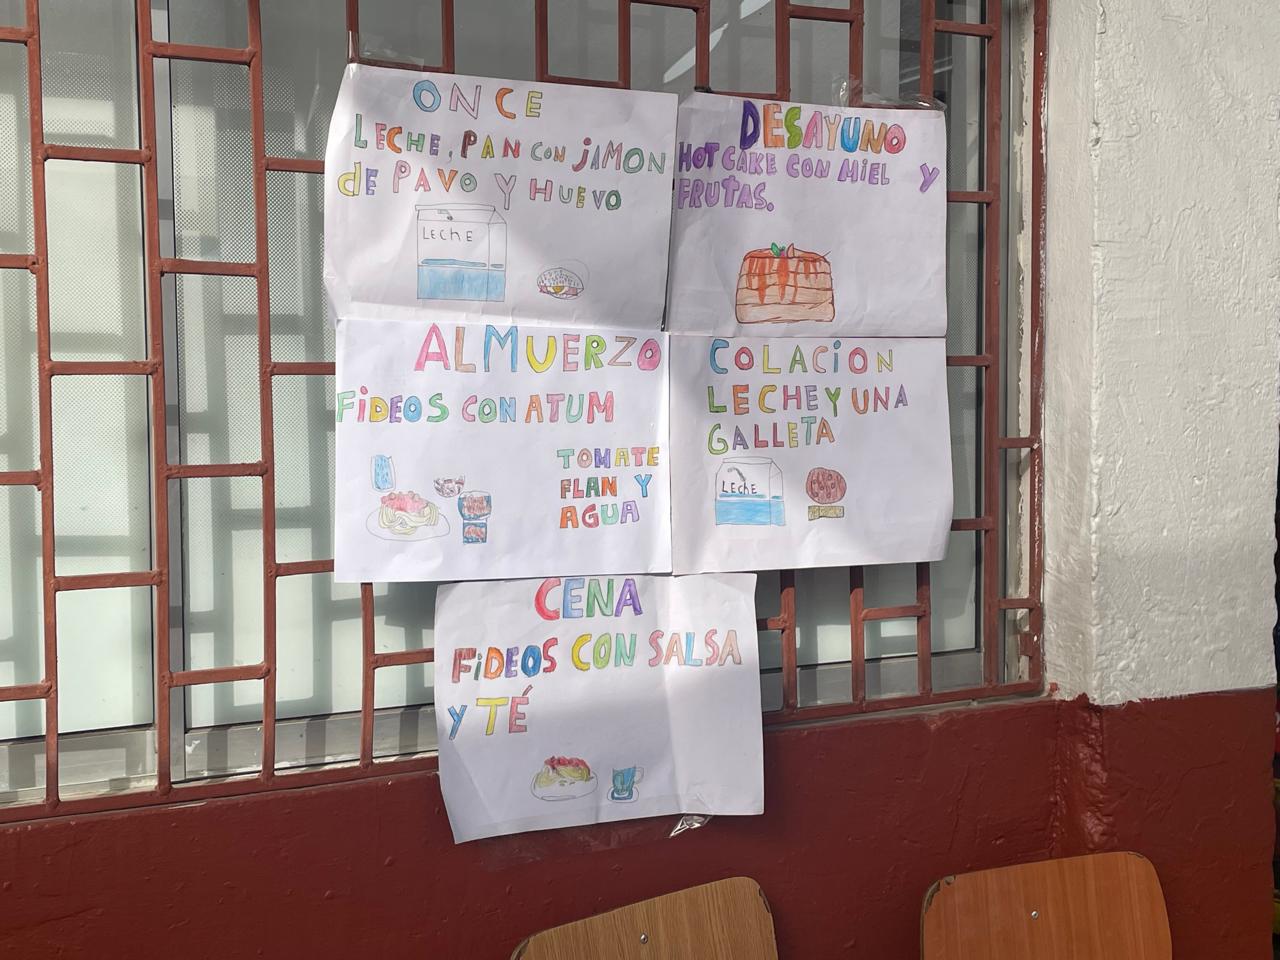 ONCE
LECHE, PAN CON jAMON
de PAVO Y HUEVO
LEChE
DESAYUNO
HOT CAKE CON MiEL Y
FRUTAS.
ALMUERZO
FiDEOS CON ATUM
TOMATE
FLAN Y
AGUA
COLACiON
LECHE Y UNA
GALLETA
LEChE
CENA
FiDEOS CON SALSA
y TÉ